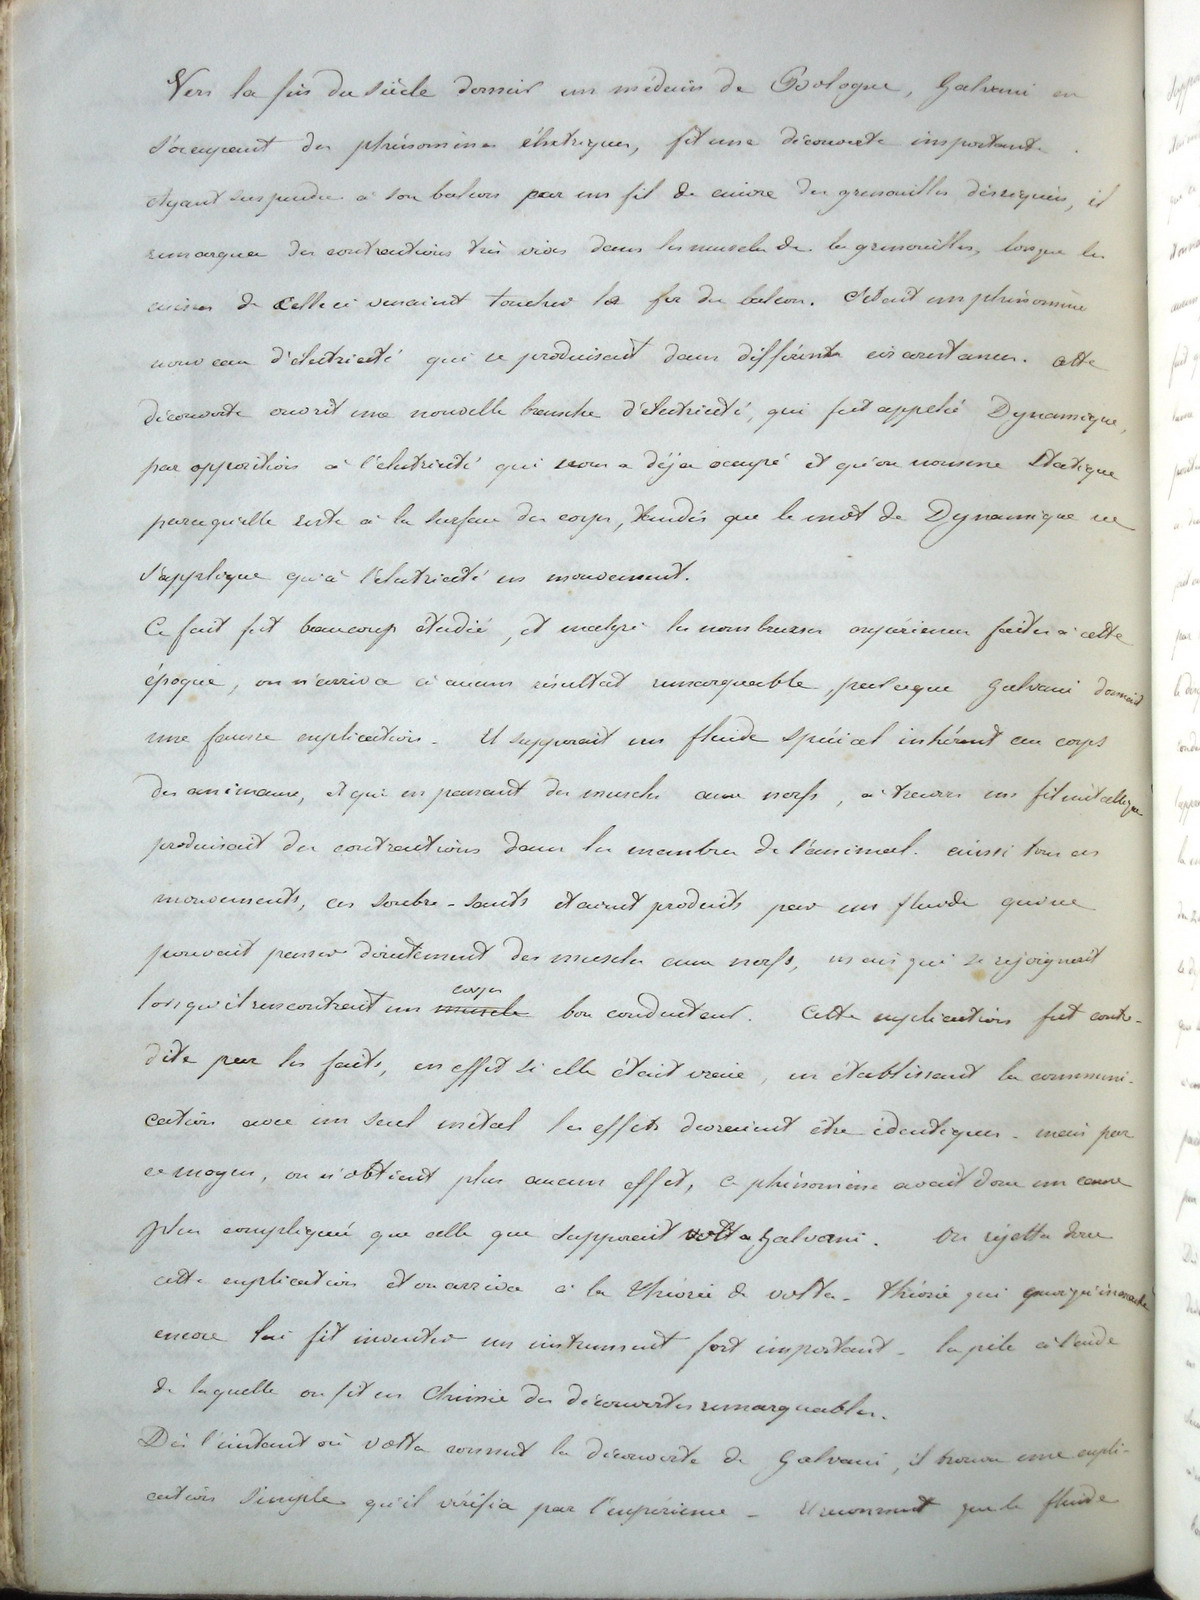 Vers la fin du siècle dernier un médecin de Bologne, Galvani en
s'occupant des phénomènes électriques, fit une découverte importante.
Ayant suspendu à son balcon par un fil de cuivre des grenouilles dessiquées, il
remarqua des contractions très vives dans les muscles de la grenouilles, lorsque les
cuisses de celle ci venaient toucher le fer du balcon. C'était un phénomène
nouveau d'électricité qui se produisait dans différents circonstances. cette
découverte ouvrit une nouvelle branche d'électricité, qui fut appelée Dynamique,
par opposition à l'électricité qui nous a déjà occupé et qu'on nomme Statique
parcequ'elle reste à la surface des corps, tandis que le mot de Dynamique ne
s'applique qu'à l'électricité en mouvement.
Ce fait fut beaucoup étudié, et malgré les nombreuses expériences faites à cette
époque, on n'arriva à aucun résultat remarquable, parceque Galvani donnait
une fausse explication. Il supposait un fluide spécial inhérent au corps
des animaux, et qui en passant des muscles aux nerfs, à travers un fil métallique
produisait des contractions dans les membres de l'animal. ainsi tous ces
mouvements, ces soubre-sauts étaient produits par un fluide qui ne
pouvait passer directement des muscles aux nerfs, mais qui se rejoignait
lorsqu'il rencontrait un muscle corps bon conducteur. Cette explication fut contre-
dite par les faits, en effet si elle était vraie, en établissant la communi-
cation avec un seul métal les effets devraient être identiques. mais par
ce moyen, on n'obtient plus aucun effet, ce phénomène avait donc une cause
plus compliquée que celle que supposait volta Galvani. On rejetta donc
cette explication et on arriva à la théorie de volta. théorie qui quoiqu'inexacte
encore lui fit inventer un instrument fort important. la pile à l'aide
de laquelle on fit en Chimie des découvertes remarquables.
Dès l'instant où volta connut la découverte de Galvani, il trouva une expli-
cation simple qu'il vérifia par l'expérience. Il reconnut que le fluide